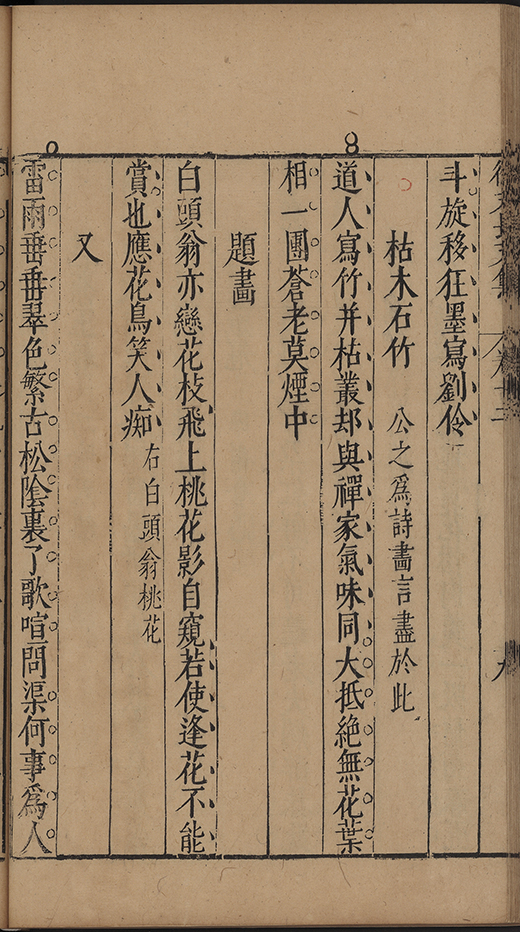 斗旋移狂墨寫劉伶
枯木石竹 公之爲詩畵言盡於此
道人寫竹并枯叢却與禪家氣味同大抵絶無花葉
相一團蒼老莫煙中
題畵
白頭翁亦戀花枝飛上桃花影自窺若使逢花不能
賞也應花鳥笑人痴 右白頭翁桃花
又
雷雨垂垂翠色繁古松陰裏了歌喧問渠何事爲人